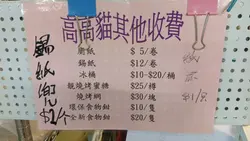 高高貓其他收費
廁紙 $5/卷
錫紙 $12/卷
冰桶 $10-$20/桶
龍燒烤蜜糖 $25/樽
燒烤網 $30/塊
環保食物鉗 $10/隻
全新食物鉗 $20/隻
錫紙兜
$2/個
紙
$1/個